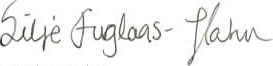 Silje Fuglaas-Hahn